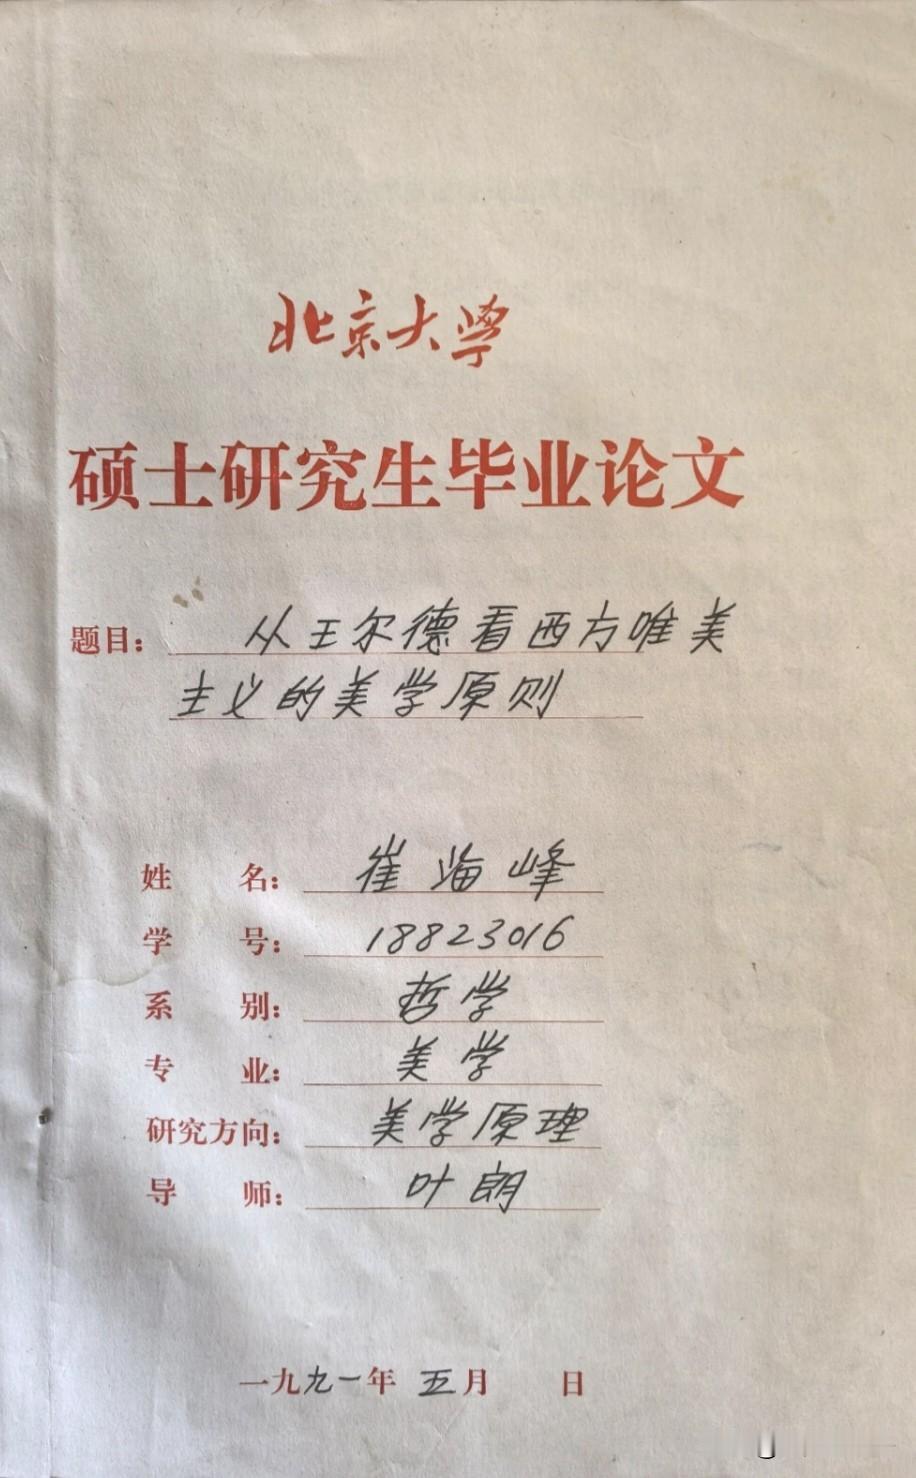 北京大学
硕士研究生毕业论文
题目: 从王尔德看西方唯美
主义的美学原则
姓名: 崔海峰
学号: 18823016
系别: 哲学
专业: 美学
研究方向: 美学原理
导师: 叶朗
一九九一年 五月 日